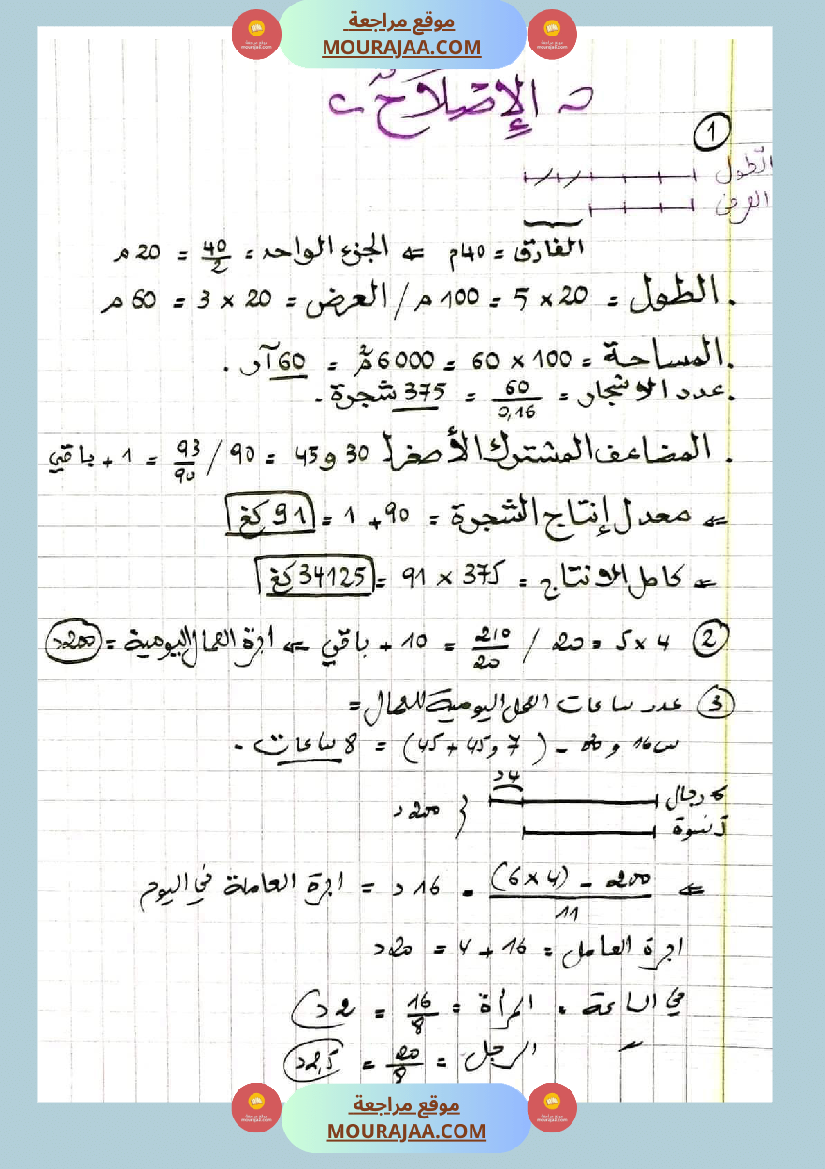 موقع مراجعة
MOURAJAA.COM
الإصلاح
1
الطول
العرض
الفارق = 40م ⇐ الجزء الواحد = 40/2 = 20 م
. الطول = 20 × 5 = 100 م / العرض = 20 × 3 = 60 م
. المساحة = 100 × 60 = 6000 م² = 60 آر .
. عدد الاشجار = 60/0,16 = 375 شجرة .
. المضاعف المشترك الأصغر لـ 30 و 45 = 90 / 93/90 = 1 + باقي
⇐ معدل إنتاج الشجرة = 90 + 1 = 91 كغ
⇐ كامل الانتاج = 375 × 91 = 34125 كغ
2 4 × 5 = 20 / 210/20 = 10 + باقي ⇐ اجرة العمال اليومية = 200د
3 عدد ساعات العمل اليومية للعمال =
س16 و - ( 7 و45 + 45) = 8 ساعات .
4د
رجال
نسوة
200د
⇐ 200 - (4 × 6) / 11 = 16 د = اجرة العاملة في اليوم
اجرة العامل = 16 + 4 = 20د
في الساعة . المرأة = 16/8 = 2 د
الرجل = 20/8 = 2,5د
موقع مراجعة
MOURAJAA.COM